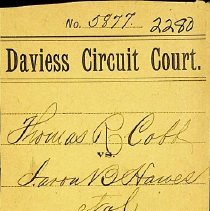 No. 5877. 2280
Daviess Circuit Court.
Thomas R Cobb
vs.
Aaron B Hawes
et al